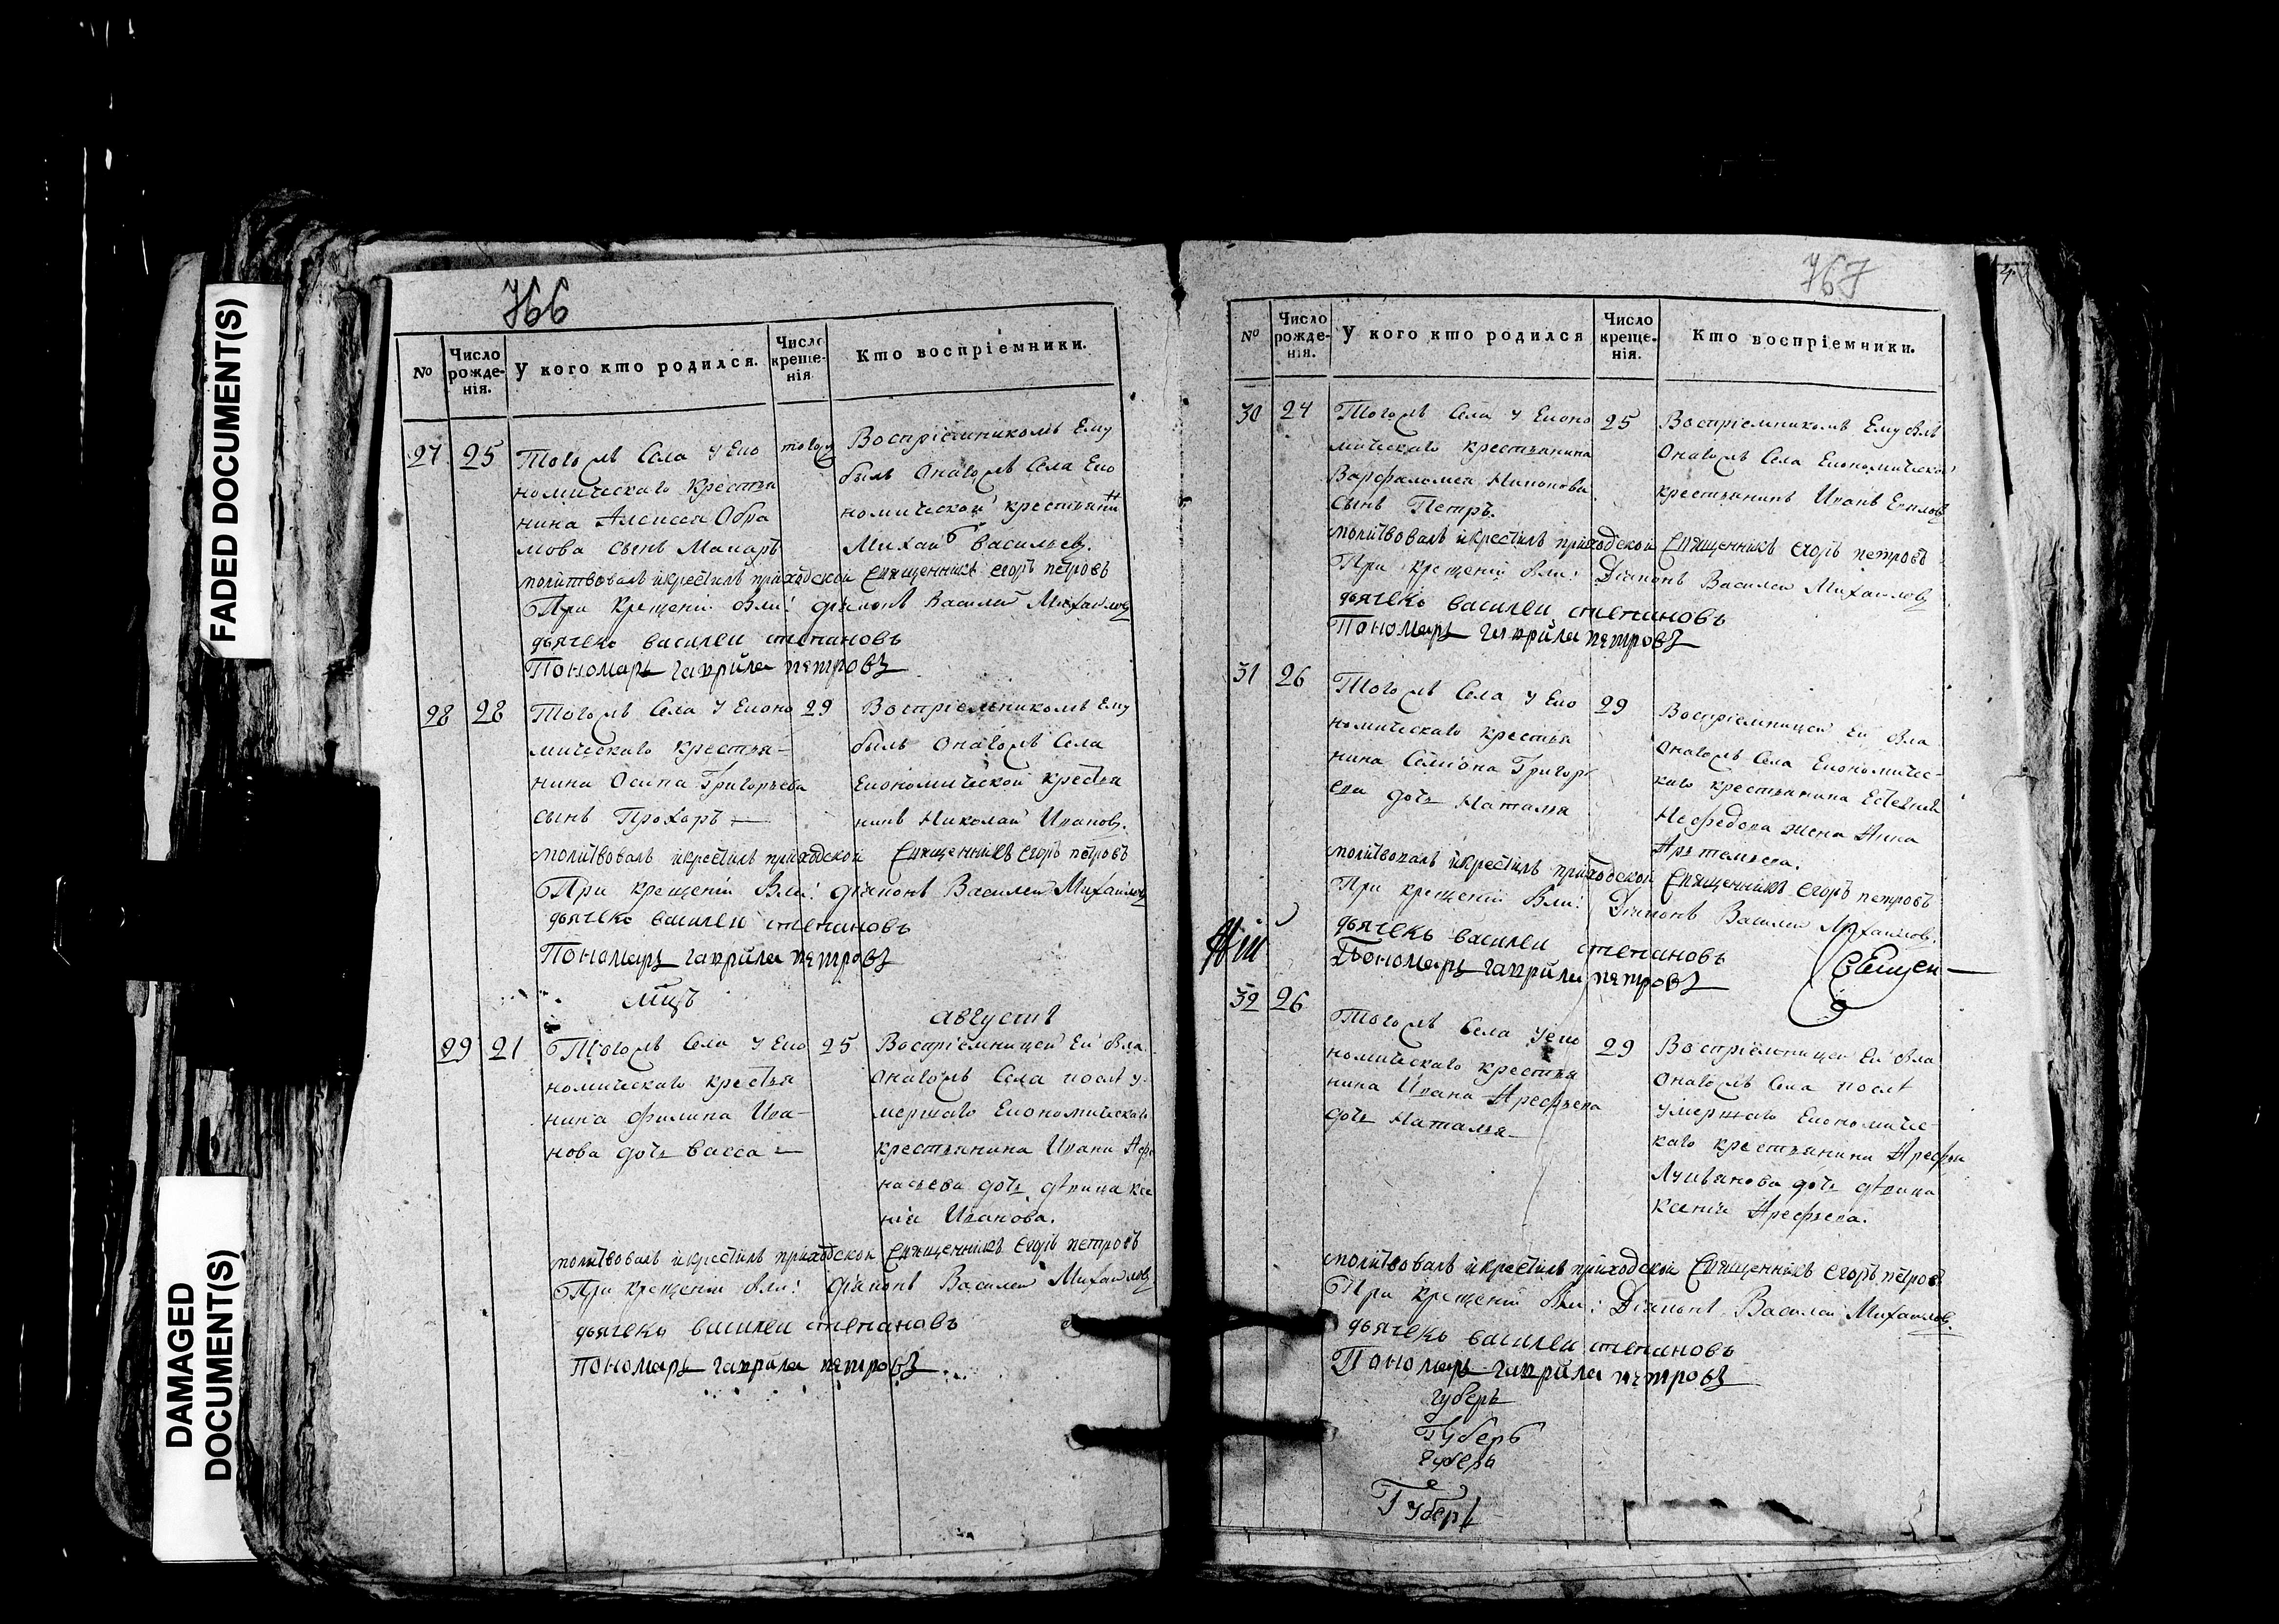 FADED DOCUMENT(S)
DAMAGED
DOCUMENT(S)
766
№
Число рожде-нія.
У кого кто родился.
Число креще-нія.
Кто воспріемники.
27 25
Тогожъ Села у Еко
номическаго крестья
нина Алексея Обра
мова сынъ Макаръ
тогожъ
Воспріемникомъ Ему
былъ Онагожъ Села Еко
номической крестьянин
Михаил Васильев.
молитвовалъ и крестилъ приходской Священникъ егоръ петровъ
При крещеніи были: діаконъ Василей Михайлов
дьячекъ василеи степановъ
Пономарь гаврила петровъ
28 28
Тогожъ Села у Еконо
мическаго крестья-
нина Осипа Григорьева
сынъ Прохоръ —
29
Воспріемникомъ Ему
былъ Онагожъ Села
Економической крестья
нинъ Николай Иванов.
молитвовалъ и крестилъ приходской Священникъ егоръ петровъ
При крещеніи были: діаконъ Василеи Михайлов
дьячекъ василеи степановъ
Пономарь гаврила петровъ
Мцъ августъ
29 21
Тогожъ Села у Еко
номическаго крестья
нина филипа Ива-
нова дочь васса —
25
Воспріемницей Ей была
Онагожъ Села послѣ у-
мершаго Економическаго
крестьянина Ивана Афо
насьева дочь дѣвица Ксе
нія Иванова.
молитвовалъ и крестилъ приходской Священникъ егоръ петровъ
При крещеніи были: діаконъ Василеи Михайлов
дьячекъ василеи степановъ
Пономарь гаврила петровъ
767
№
Число рожде-нія.
У кого кто родился
Число креще-нія.
Кто воспріемники.
30 24
Тогожъ Села у Еконо
мическаго крестьянина
Варфаломея Никонова
сынъ Петръ.
25
Воспріемникомъ Ему былъ
Онагожъ Села Економической
крестьянинъ Иванъ
молитвовалъ и крестилъ приходской Священникъ егоръ петровъ
При крещеніи были: Діаконъ Василеи Михайлов
дьячекъ василеи степановъ
Пономарь гаврила петровъ
31 26
Тогожъ Села у Еко
номическаго крестья
нина Семіона Григорь
ева дочь Наталья
29
Воспріемницей Ей была
Онагожъ Села Економичес-
каго крестьянина Естевнея
Нефедова жена Анна
Артемьева.
молитвовалъ и крестилъ приходской Священникъ егоръ петровъ
При крещеніи были: Діаконъ Василеи Михайлов.
дьячекъ василеи степановъ
Пономарь гаврила петровъ
Священ—
32 26
Тогожъ Села у еко
номическаго крестья
нина Ивана Арефьева
дочь Наталья
29
Воспріемницей Ей была
Онагожъ Села послѣ
умершаго Економичес-
каго крестьянина Арефья
Лукьянова дочь дѣвица
Ксенія Арефьева.
молитвовалъ и крестилъ приходской Священникъ егоръ петровъ
При крещеніи были: Діаконъ Василеи Михайлов.
дьячекъ василеи степановъ
Пономарь гаврила петровъ
губеръ
Губеръ
губерь
Губерь